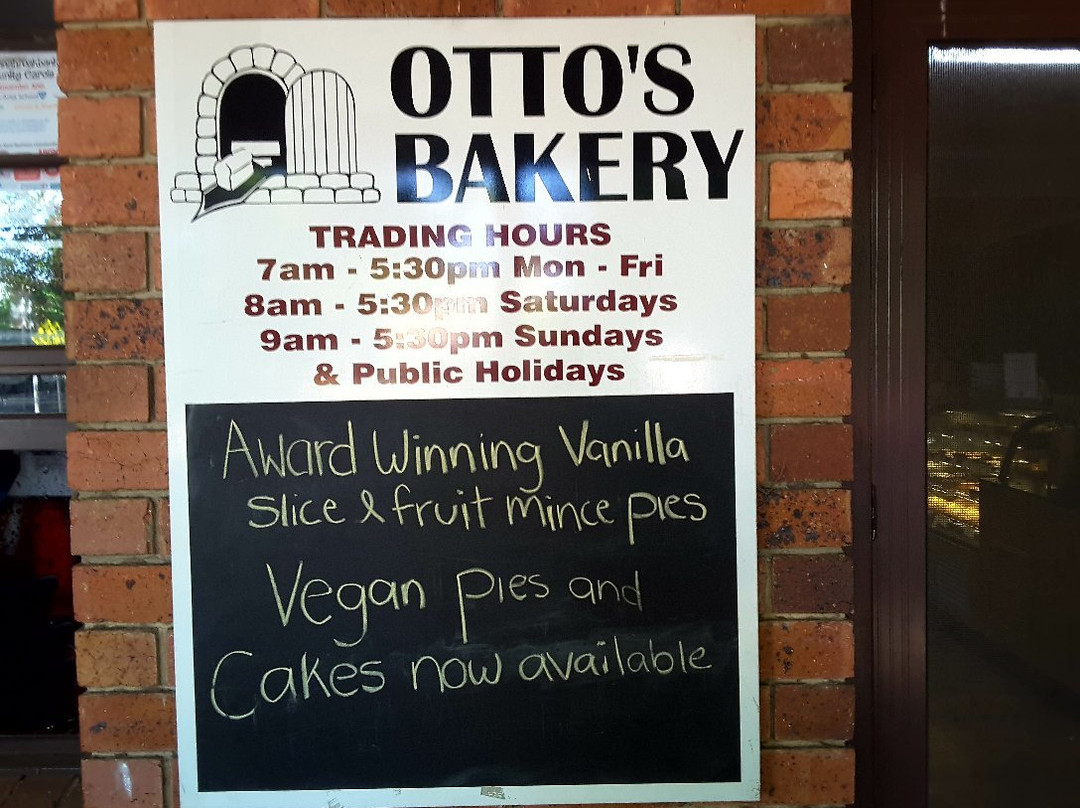 OTTO'S
BAKERY
TRADING HOURS
7am - 5:30pm Mon - Fri
8am - 5:30pm Saturdays
9am - 5:30pm Sundays
& Public Holidays
Award Winning Vanilla
Slice & fruit mince pies
Vegan pies and
Cakes now available